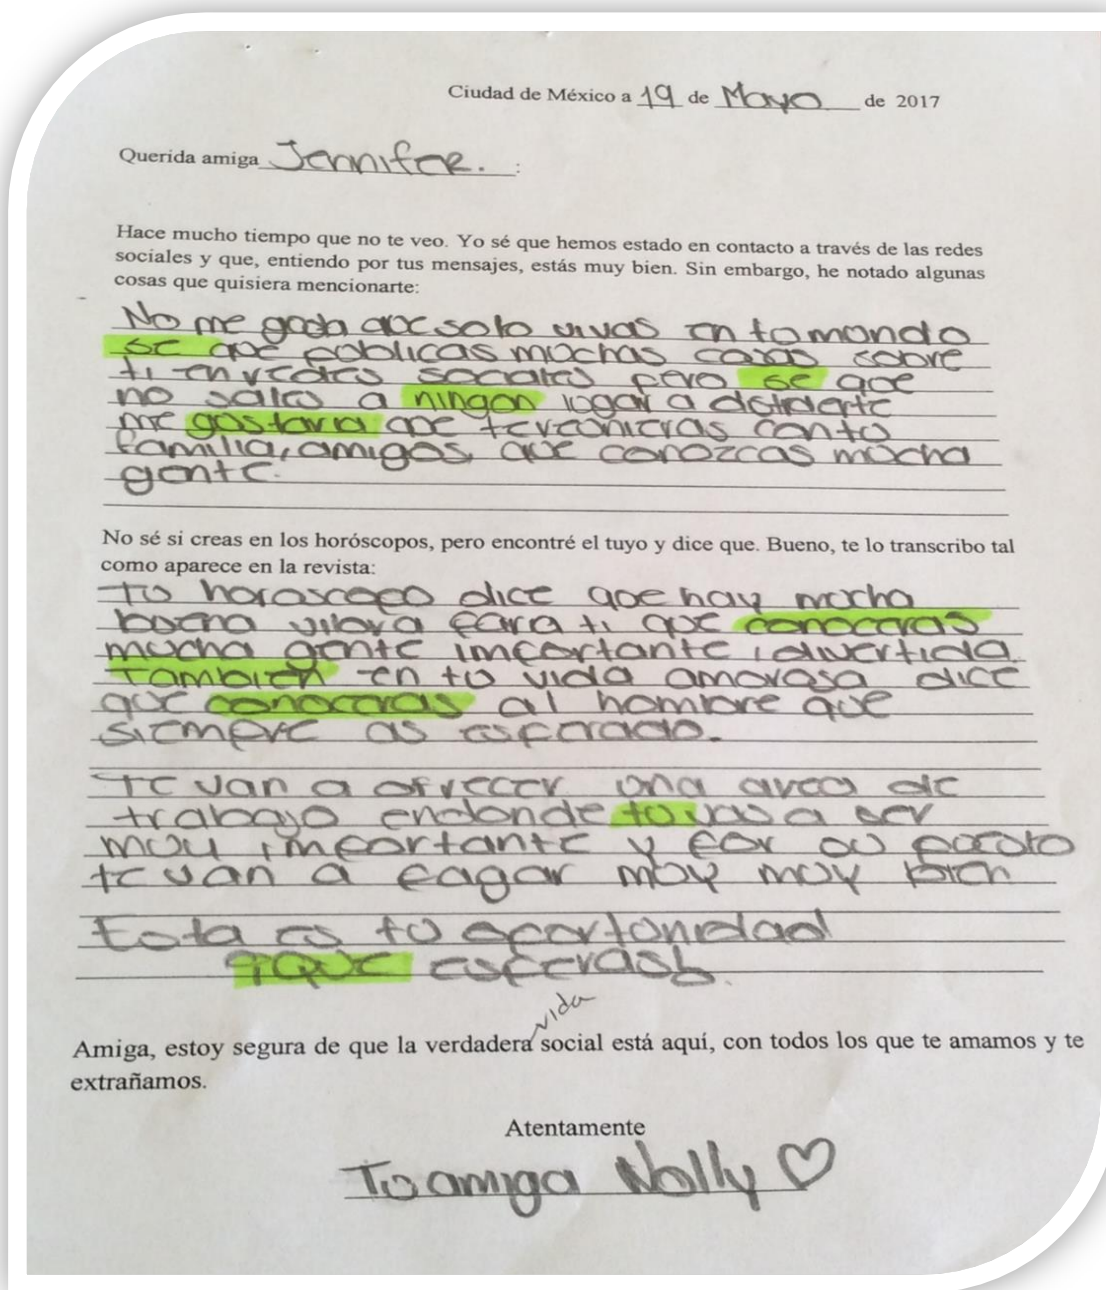 Ciudad de México a 19 de Mayo de 2017
Querida amiga Jennifer. :
Hace mucho tiempo que no te veo. Yo sé que hemos estado en contacto a través de las redes
sociales y que, entiendo por tus mensajes, estás muy bien. Sin embargo, he notado algunas
cosas que quisiera mencionarte:
No me gusta que solo vivas en tu mundo
se que publicas muchas cosas sobre
ti en redes sociales pero se que
no sales a ningun lugar a distraerte
me gustaria que te reunieras con tu
familia, amigos, que conozcas mucha
gente.
No sé si creas en los horóscopos, pero encontré el tuyo y dice que. Bueno, te lo transcribo tal
como aparece en la revista:
tu horoscopo dice que hay mucha
buena vibra para ti que conoceras
mucha gente importante, divertida
Tambien en tu vida amorosa dice
que conoceras al hombre que
siempre as esperado.
Te van a ofrecer una area de
trabajo endonde tu vas a ser
muy importante y por su puesto
te van a pagar muy muy bien
Esta es tu oportunidad
¿que esperas?
vida
Amiga, estoy segura de que la verdadera social está aquí, con todos los que te amamos y te
extrañamos.
Atentamente
Tu amiga Nolly ♡